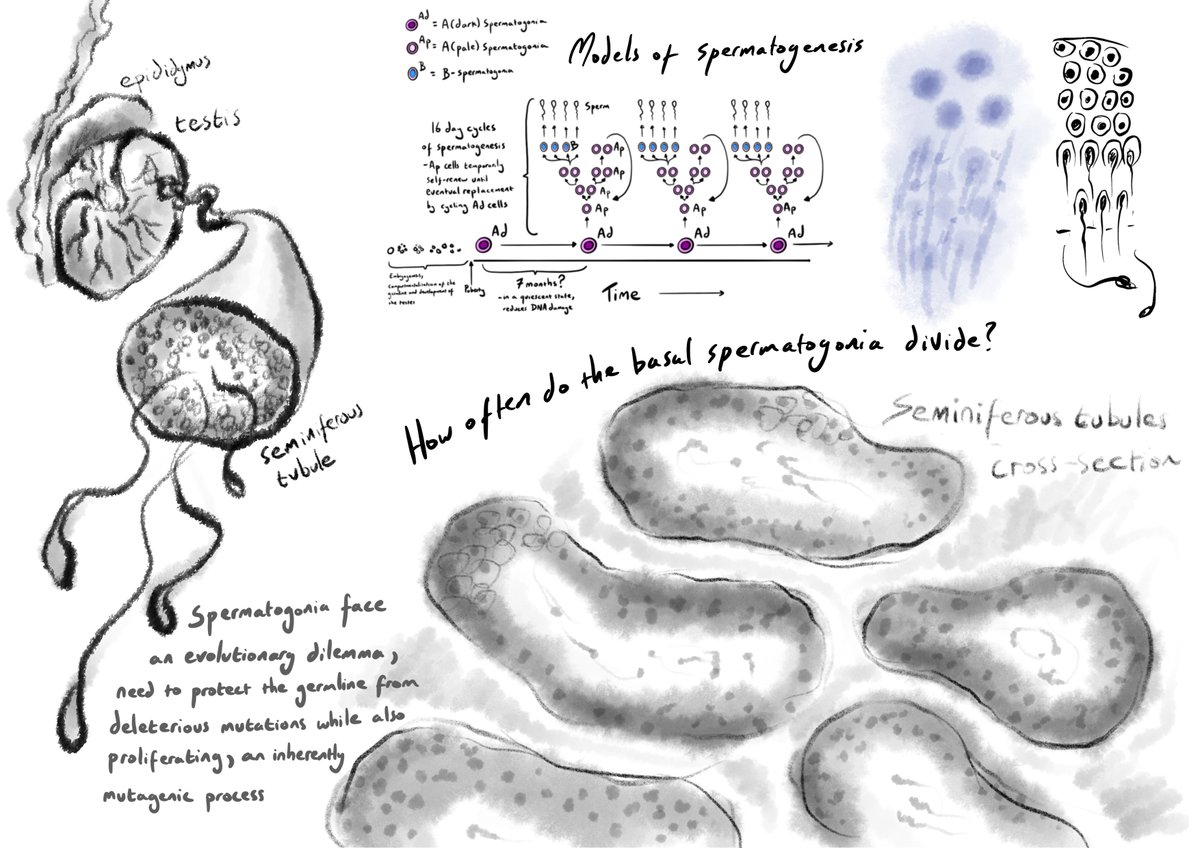 epididymus
testis
seminiferous
tubule
Ad = A(dark) Spermatogonia
Ap = A(pale) Spermatogonia
B = B-spermatogonia
Models of spermatogenesis
16 day cycles
of spermatogenesis
- Ap cells temporarily
self-renew until
eventual replacement
by cycling Ad cells
Sperm
B
Ap
Ap
Ap
Ap
Ap
Ap
Ad
Ad
Ad
Ad
Embryogenesis,
compartmentalisation of the
germline and development of
the testes
Puberty
7 months?
- in a quiescent state,
reduces DNA damage
Time
How often do the basal spermatogonia divide?
Seminiferous tubules
cross-section
Spermatogonia face
an evolutionary dilemma,
need to protect the germline from
deleterious mutations while also
proliferating, an inherently
mutagenic process